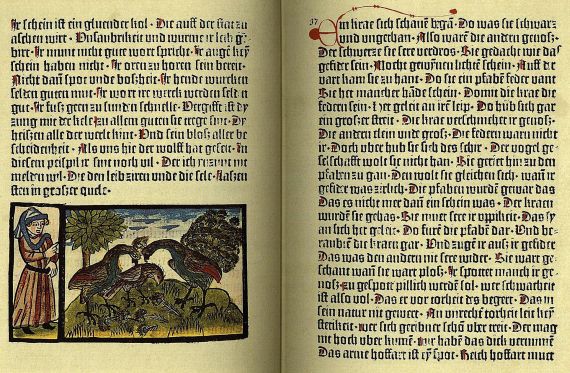 Ir schein ist ein gluender kol · Die auff der stat zu
aschen wirt · Unsauberkeit und unere ir leib ge-
birt · Ir munt nicht gute wort spricht · Ir auge key
schein haben nicht · Ir oren zu horen sein bereit ·
Nicht dañ spot unde boszheit · Ir hende wurcken
selden guten mut · Ir wort ire werck werden sel-
den gut · Ir fusz geen zu sunden schnelle · Vergifft ist ir
zung mit der kele · Zu allem guten sie trege sint · Dy
heiszen alle der werlt kint · Und sein blosz aller be-
scheidenheit · Als uns hie der wolff hat geseit · In
disem peispil ir sint noch vil · Der ich yczunt nit
melden wil · Die den leib ziren unde die sele · Laszen
sten in groszer quele ·
37
Ein krae sich schauē began · Do was sie schwarz
und ungethan · Also warē die andern genosz ·
Der schwerze sie sere verdros · Sie gedacht wie das
gefider sein · Mocht gewinen lichten schein · Auff der
vart kam sie zu hant · Do sie ein pfabē feder vant
Die het mancher hāde schein · Domit die krae die
federn sein · Her geleit an irē leip · Do hub sich gar
ein groszer streit · Die krae verschmecht ir genosz ·
Die andern clein und grosz · Die federn warn nicht
ir · Doch uber hub sie sich des schir · Der vogel ge-
selschafft wolt sie nicht han · Sie geriet hin zu den
pfaben zu gan · Den wolt sie gleichen sich · wañ ir
gefider was zirlich · Die pfaben wurdē gewar das
Das es nicht mer dañ ein schein was · Der kraen
wurdē sie gehas · Sie muet sere ir uppikeit · Das sy
an sich het geleit · Do furē die pfaben dar · Und be-
raubtē die kraen gar · Und zugē ir ausz ir gefider
Das was den andern nit sere wider · Sie wart ge-
schant wañ sie wart plosz · Ir spottet manch ir ge-
nosz · Zu gespot pillich werdē sol · wer schwarheit
ist also vol · Das er vor torheit des begert · Das im
sein natur nit gewert · An unrechtē torheit leit key
steikeit · wer sich greibet schōn uber treit · Der mag
nit hoch uber kumē · Mir habē das dick vernumen
Das arme hoffart ist eȳ spot · Reich hoffart muet